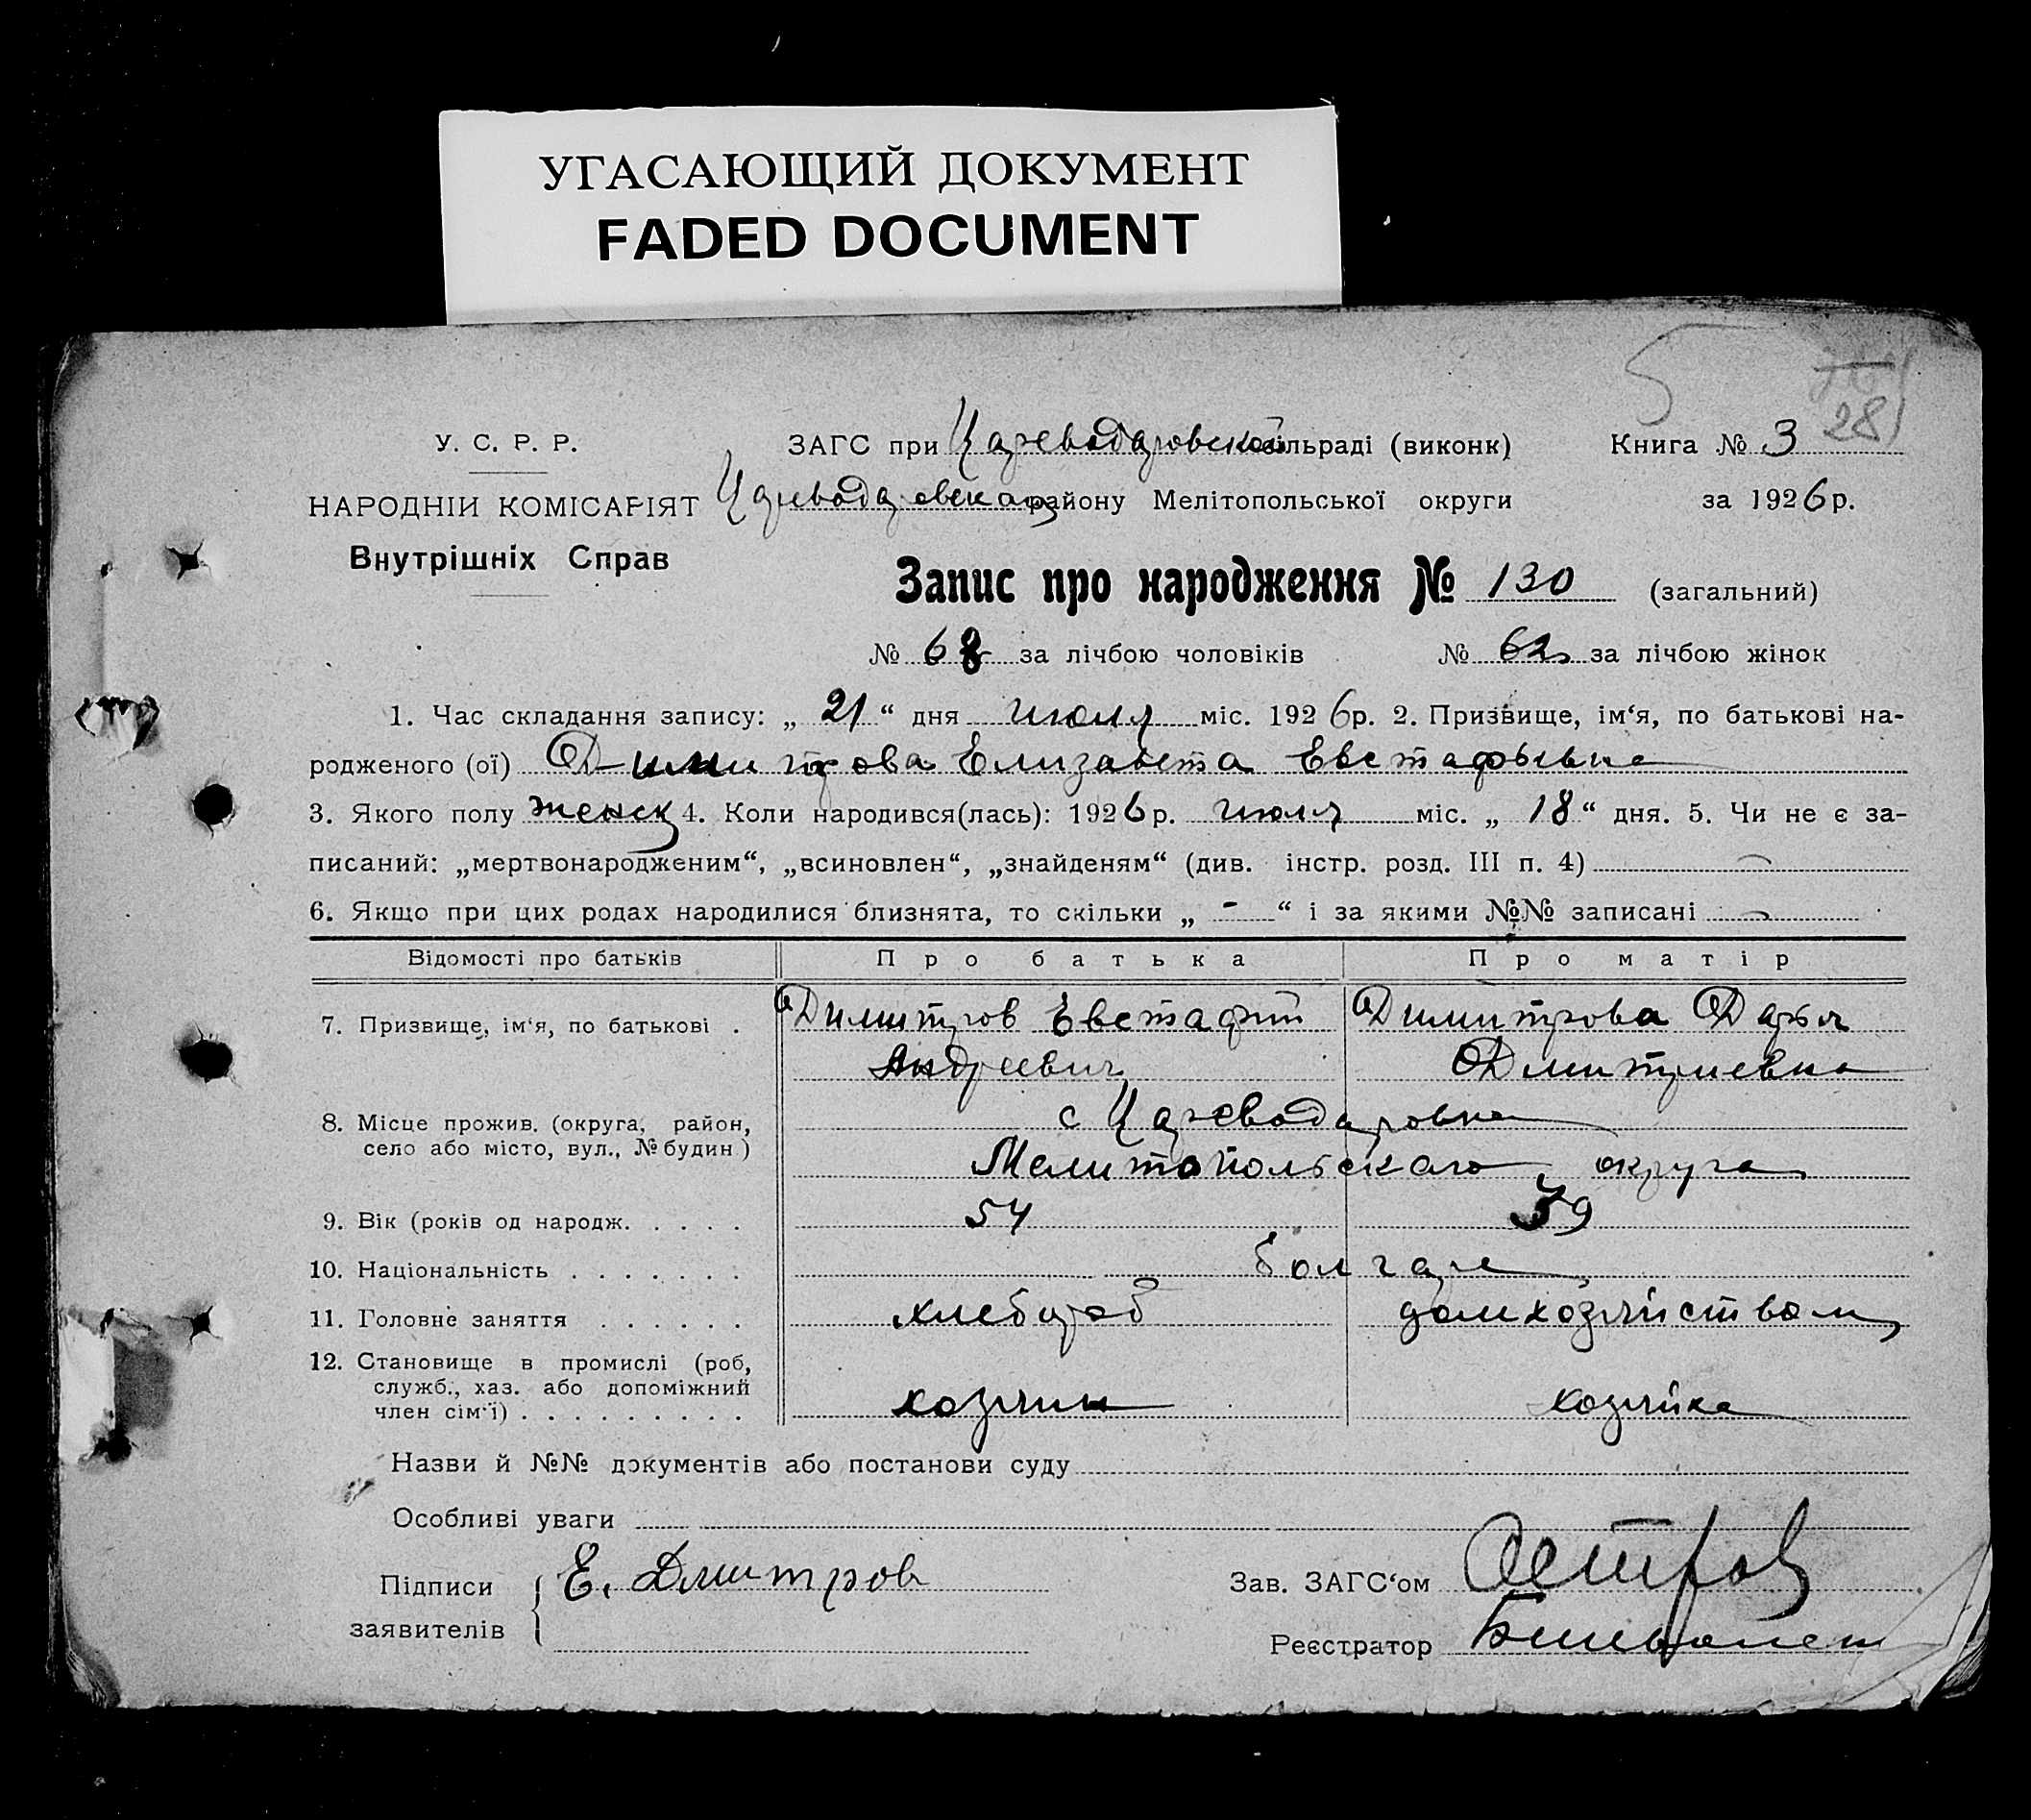 УГАСАЮЩИЙ ДОКУМЕНТ
FADED DOCUMENT
28
У. С. Р. Р.
ЗАГС при Цареводаровской сільраді (виконк)
Книга № 3
НАРОДНІЙ КОМІСАРІЯТ
Цареводаровскаго району Мелітопольської округи
за 1926 р.
Внутрішніх Справ
Запис про народження № 130 (загальний)
№ 68 за лічбою чоловіків № 62 за лічбою жінок
1. Час складання запису: „ 21 “ дня июля міс. 1926 р. 2. Призвище, ім‘я, по батькові на-
родженого (ої) Димитрова Елизавета Евстафьевна
3. Якого полу женск 4. Коли народився(лась): 1926 р. июля міс. „ 18 “ дня. 5. Чи не є за-
писаний: „мертвонародженим“, „всиновлен“, „знайденям“ (див. інстр. розд. III п. 4) —
6. Якщо при цих родах народилися близнята, то скільки „ - “ і за якими №№ записані —
Відомості про батьків Про батька Про матір
7. Призвище, ім‘я, по батькові . Димитров Евстафий Димитрова Дарья
Андреевич Дмитриевна
8. Місце прожив. (округа, район, с Цареводаровка
село або місто, вул., № будин) Мелитопольскаго округа
9. Вік (років од народж. . . . . 54 39
10. Національність . . . . . . . болгаре
11. Головне заняття . . . . . . хлебороб домхозяйством
12. Становище в промислі (роб,
служб., хаз. або допоміжний
член сім‘ї) . . . . . . . . . хозяин хозяйка
Назви й №№ документів або постанови суду
Особливі уваги
Підписи Е. Дмитров
заявителів
Зав. ЗАГС‘ом
Реєстратор